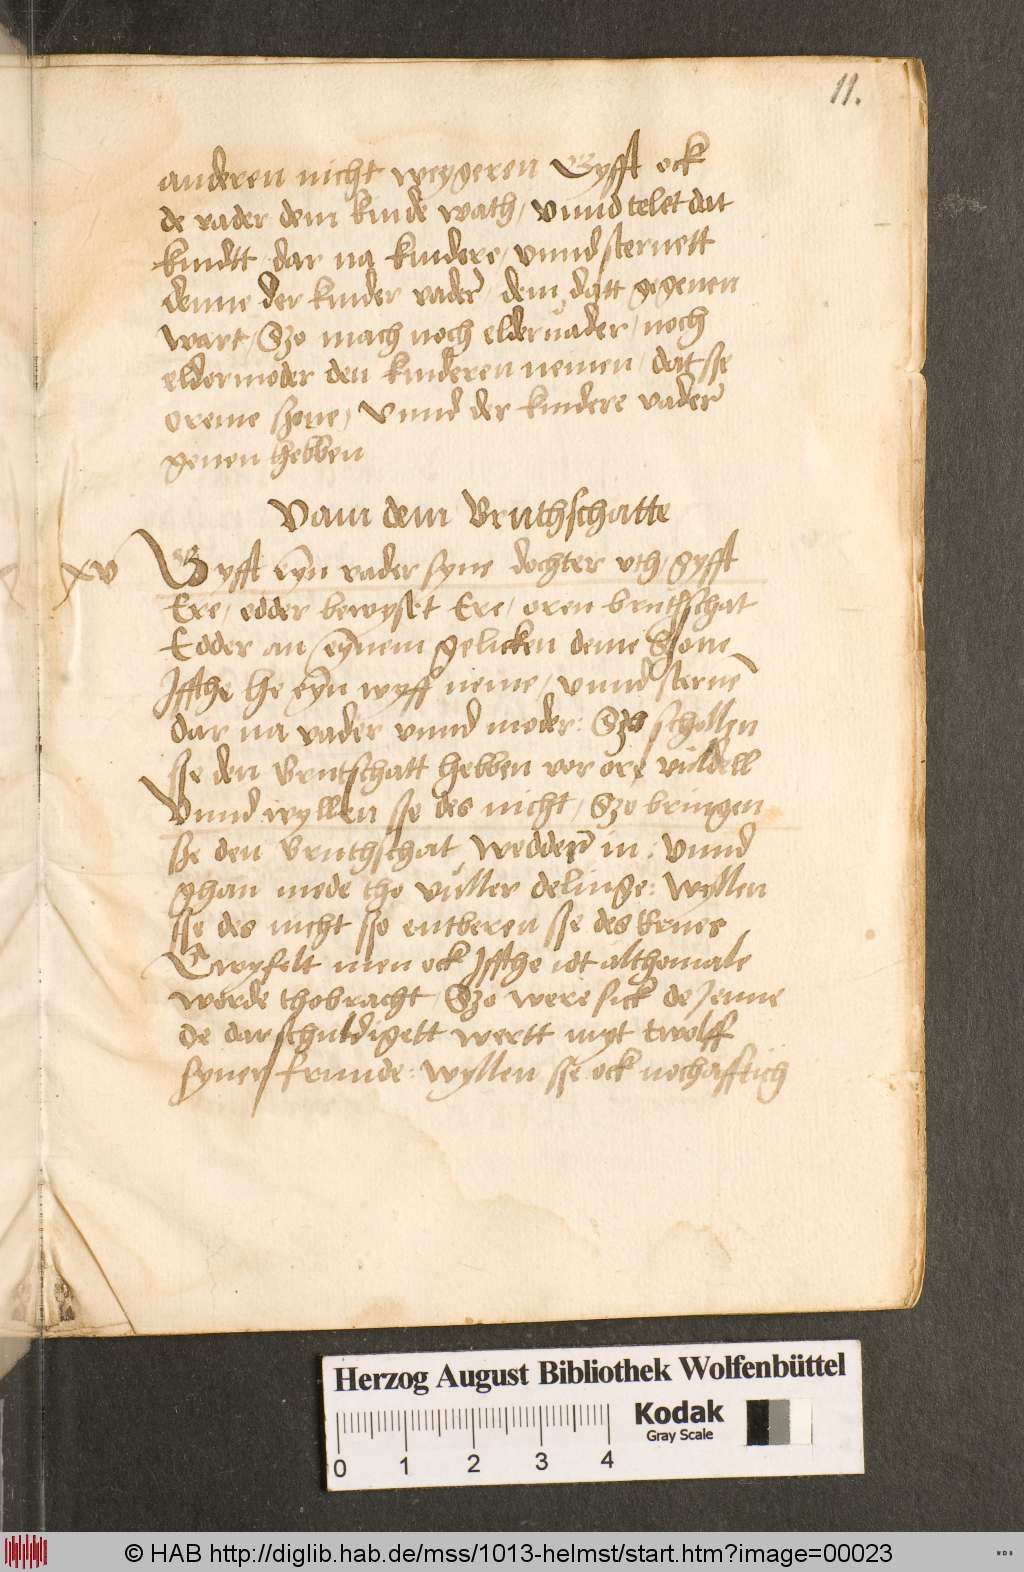 11.
anderen nicht weygeren Gyfft ock
de vader dem kinde wath, vnnd telet dat
kindtt dar na kindere, vnnd steruett
denne der kinder vader, dem datt gegeuen
wart, Szo mach noch elderuader, noch
eldermoder den kinderen nemen, dat sse
oreme szone, Vnnd der kindere vader
geuen hebben
Vam dem Bruthschatte
xv Gyfft eyn vader syne dochter vth, gyfft
Ere, edder bewyset Ere, oren bruthschat
Edder an eynem gelicken deme Szone
Iffthe he eyn wyff neme, vnnd sterue
dar na vader vnnd moder: Szo schollen
sse den Brutschatt hebben vor ore vuldell
Vnnd wyllen sse des nicht, Szo bringen
sse den Bruthschat wedder in, Vnnd
ghan mede tho vuller delinge: Wyllen
sse des nicht sso entberen sse des Erues
Twyfelt men ock Iffthe idt althomale
worde thobracht, Szo were sick de Jenne
de dar schuldigett wertt myt twolff
syner frunde: Wyllen sse ock nochafftich
Herzog August Bibliothek Wolfenbüttel
Kodak
Gray Scale
0 1 2 3 4
© HAB http://diglib.hab.de/mss/1013-helmst/start.htm?image=00023